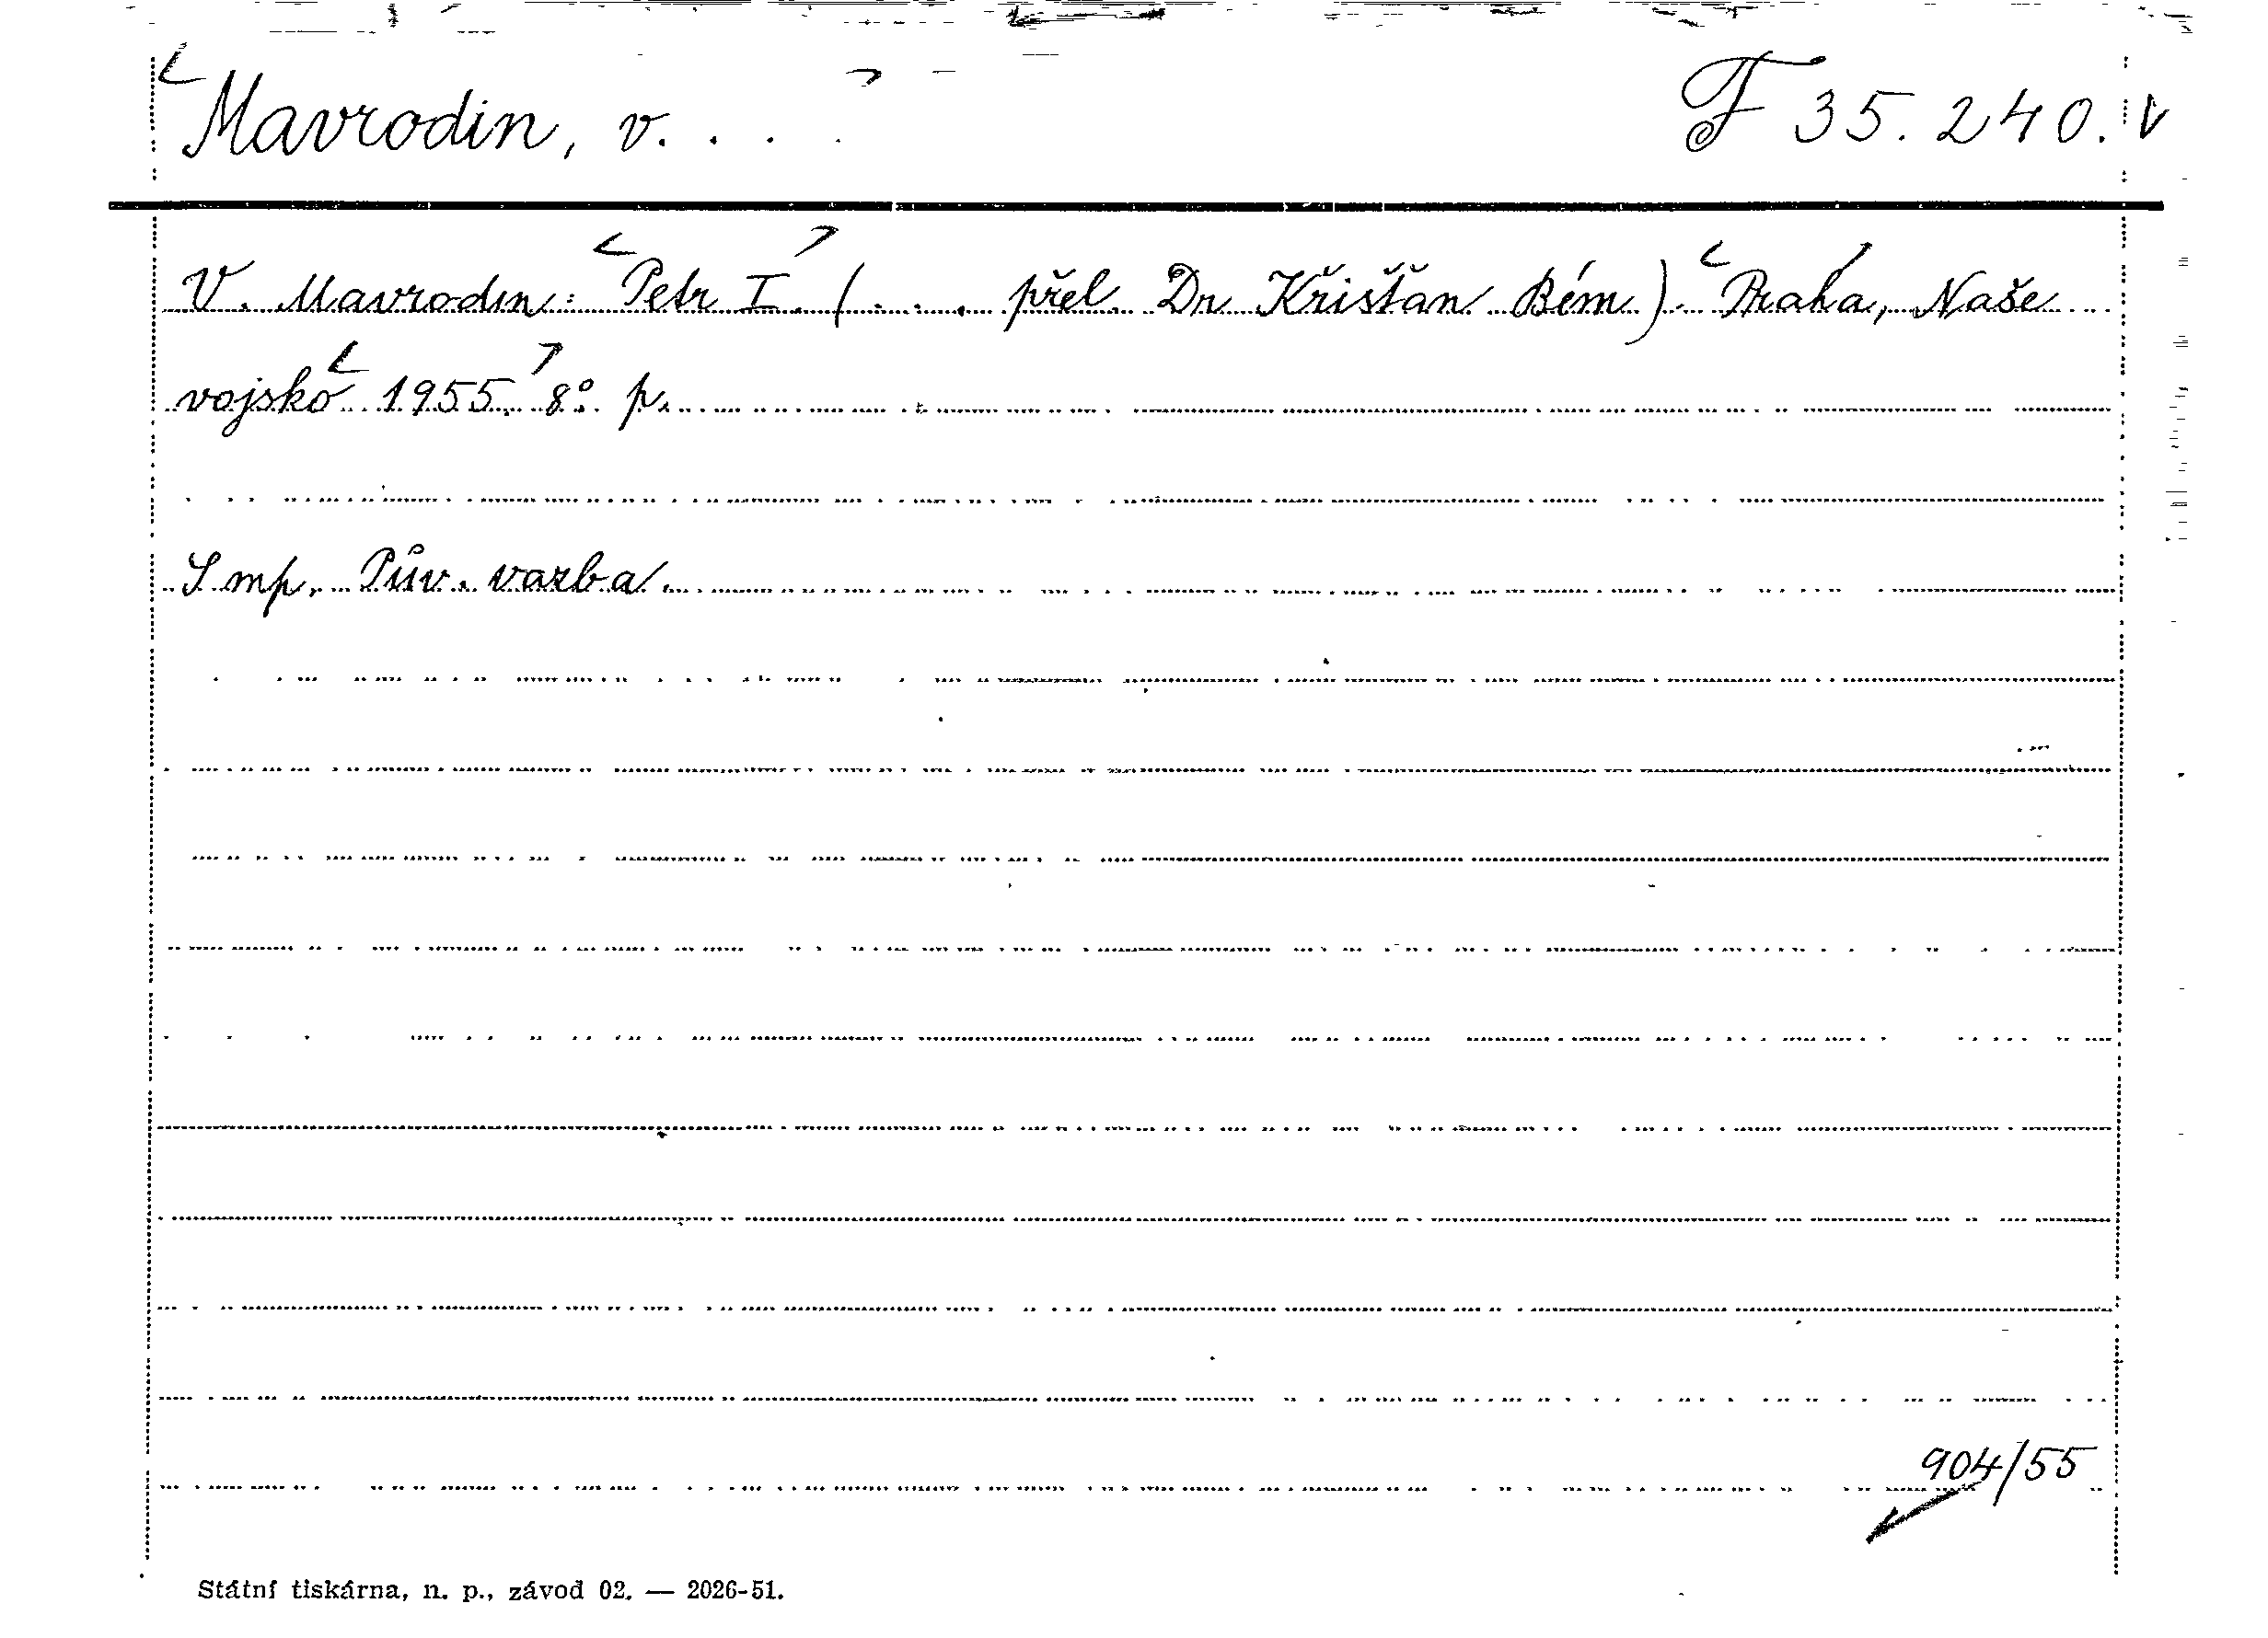 Mavrodin, V. . . . F 35.240. V
V. Mavrodin: Petr I. (. . . přel. Dr Křišťan Bém). Praha, Naše
vojsko 1955. 8°. p.
Imp. Pův. vazba.
904/55
Státní tiskárna, n. p., závod 02. — 2026-51.